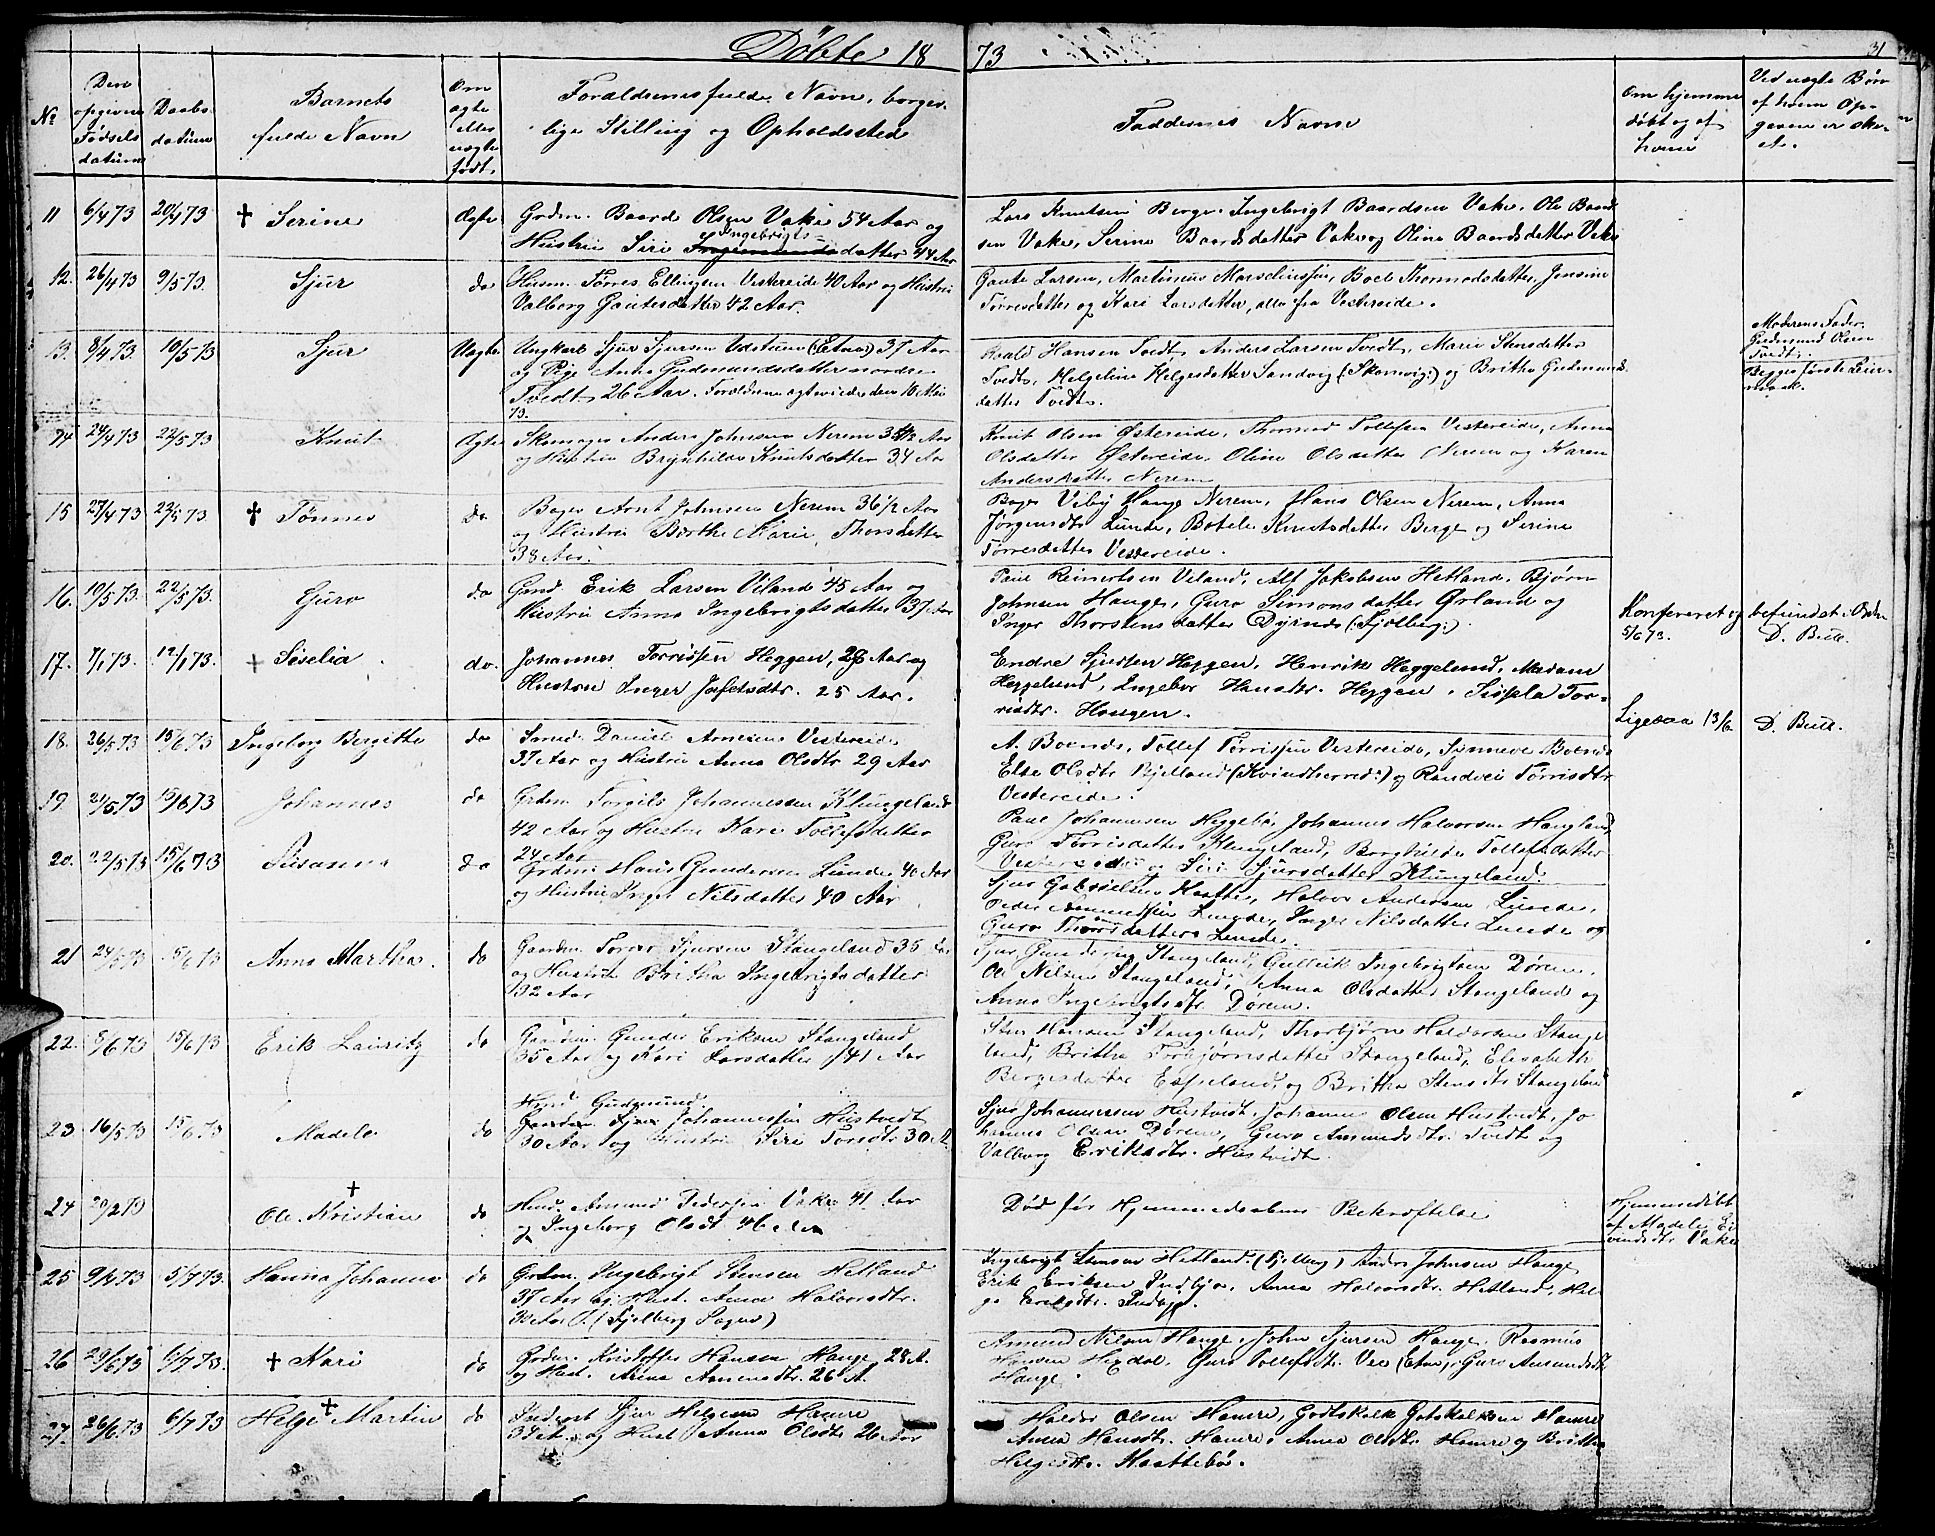 Döbte 18 73
31
No
Den opgivne Födsels datum
Daabs datum
Barnets fulde Navn
Om ægte eller uægte födt.
Forældrenes fulde Navn, borger-
lige Stilling og Opholdssted
Faddernes Navne
Om hjemme döbt og af hvem
Ved uægte Börn af hvem Op-
gaven er ske-
et.
11 6/4 73 20/4 73 † Serine Ægte Grdm. Baard Olsen Vake 54 Aar og
Hustru Siri Ingebrigts-datter 44 Aar
Lars Knutsen Berge, Ingebrigt Baardsen Vake, Ole Baard
sen Vake, Serine Baardsdatter Vake og Oline Baardsdatter Vake
12. 26/4 73 9/5 73. Sjur do Husm. Törres Ellingsen Vestereide 40 Aar og Hustru
Valborg Gautesdatter 42 Aar.
Gaute Larsen, Martinus Marselius, Boel Thormodsdatter, Jensine
Törresdatter og Kari Larsdatter, alle fra Vestereide.
13. 8/4 73. 10/5 73 Sjur Uægte Ungkarl Sjur Sjursen Udstuen (Etne) 37 Aar
og Pige Anna Gudmundsdatter nordre
Tvedt 26 Aar. Forældrene ægteviede den 10 Mai
73.
Roald Hansen Tvedt, Anders Larsen Tvedt, Marie Stensdatter
Tvedt, Helgeline Helgesdatter Sandvig (Skonevig) og Britha Gudmunds
datter Tvedt.
Moderens Fader
Gudmund Olsen
Tvedt.
Begges förste Leier-
maal.
14 24/4 73 22/5 73 Knut Ægte Skomager Anders Johnsen Nerem Aar
og Hustru Brynhilde Knutsdatter 34 Aar
Knut Olsen Östereide, Thormod Tollefsen Vestereide, Anna
Olsdatter Östereide, Oline Olsdatter Nerem og Karen
Andersdatter Nerem
15 27/4 73 22/5 73. † Tönnes do Bager Arnt Johnsen Nerem 36 1/2 Aar
og Hustru Berthe Marie Thorsdatter
38 Aar.
Bager Viby Hauge Nerem, Hans Olsen Nerem, Anna
Jörgensdtr Lunde, Botele Knutsdatter Berge og Serine
Törresdatter Vestereide.
16. 10/5 73. 22/5 73. Guro do Grmd. Erik Larsen Viland 45 Aar og
Hustru Anna Ingebrigtsdatter 37 Aar
Paul Reinertsen Viland, Alf Jakobsen Hetland, Björn
Johnsen Hauge, Guro Simonsdatter Örland og
Inger Thorstensdatter Dyrnes (Fjelberg).
Konfereret og befundet i Orden
5/6 73. D. Bull.
17. 7/1 73. 12/1 73. † Siselia do. Johannes Torrissen Heggen, Aar og
Hustru Inger Josefsdtr. 25 Aar.
Endre Sjursen Heggen, Henrik Heggelund, Madam
Heggelund, Ingebor Hansdtr. Heggen, Tor-
risdtr. Haugen.
Ligesaa 13/6 D. Bull.
18. 26/5 73 15/6 73 Ingeborg Bergithe do Smed Daniel Arnesen Vestereide
37 Aar og Hustru Anna Olsdtr 29 Aar
A. Boends, Tollef Törrissen Vestereide, Synneve Boends
Else Olsdtr Bjelland (Kvindherred) og Randvei Törrisdtr
Vestereide.
19 21/5 73 15/6 73 Johannes do Grdm. Torgils Johannessen Klungeland
42 Aar og Hustru Kari Tollefsdatter
24 Aar
Paul Johannesen Heggebö, Johannes Halvorsen Haugland
Guro Torrisdatter Klungeland, Borghilde Tollefsdatter
Vestereide og Siri Sjursdatter Klungeland.
20. 22/5 73 15/6 73 Susanna do Grdm. Hans Gundersen Lunde 40 Aar
og Hustru Inger Nilsdatter 40 Aar
Sjur Gabrielsen Kaatten, Halvor Andersen Lunde,
Lunde, Inger Nilsdatter Lunde og
Guro Thorsdatter Lunde.
21 24/5 73 15/6 73 Anna Martha. do Gaardm. Torres Sjursen Stangeland 35 Aar
og Hustru Britha Ingebrigtsdatter
32 Aar
Stangeland, Gullik Ingebrigtsen Dörem,
Ole Nilsen Stangeland, Anna Olsdatter Stangeland og
Anna Ingebrigtsdtr. Dörem.
22. 8/6 73 15/6 73 Erik Lauritz do Gaardm. Gunder Eriksen Stangeland
35 Aar og Kari Larsdatter 41 Aar
Sten Hansen Stangeland, Thorbjörn Haldorsen Stange
land, Britha Torbjörnsdatter Stangeland, Elisabeth
Bergesdatter Espeland, og Britha Stensdtr Stangeland
23 16/5 73 15/6 73 Madele do Hmd Gudmund
Johannessen Hustvedt
30 Aar og Hustru Siri Torsdtr 30 A.
Sjur Johannessen Hustvedt, Johannes Olsen Hustvedt, Jo
hannes Olsen Dörem, Guro Amundsdtr. Tvedt og
Valborg Eriksdtr. Hustvedt.
24 20/2 73 † Ole Kristian do Hmd. Amund Pedersen Vake 41 Aar
og Ingeborg Olsdt 46 Aar
Död för Hjemmedaabens Bekræftelse
Hjemmedöbt
af Madele Ei
vindsdtr Vake
25 9/6 73 5/7 73. Hanna Johanna do Grdm. Ingebrigt Stensen Hetland
37 Aar og Hust. Anna Halvorsdtr.
Aar (Fjelberg Sogn)
Ingebrigt Stensen Hetland (Fjelberg) Anders Johnsen Hauge
Erik Eriksen Indbjo, Anna Halvorsdtr. Hetland, Hel
ga Eriksdtr. Indbjo.
26 20/6 73 6/7 73. † Mari do Grdm. Kristoffer Hansen Hauge 28 A.
og Hust. Anna Amunsdtr. 26 A.
Amund Nilsen Hauge, John Sjursen Hauge, Rasmus
Hansen Hegdal, Guro Tollefsdtr. Vee (Etne), Guro Amundsdtr
Hauge.
27. 26/6 73 6/7 73 Helge † Martin do Sjur Helgesen Hamre
A. og Hust Anna Olsdtr 26 Aar
Haldor Olsen Hamre, Godtskalk Gotskalksen Hamre
Anna Hansdtr. Hamre, Anna Olsdtr. Hamre og Britha
Helgesdtr. Kaattebö.